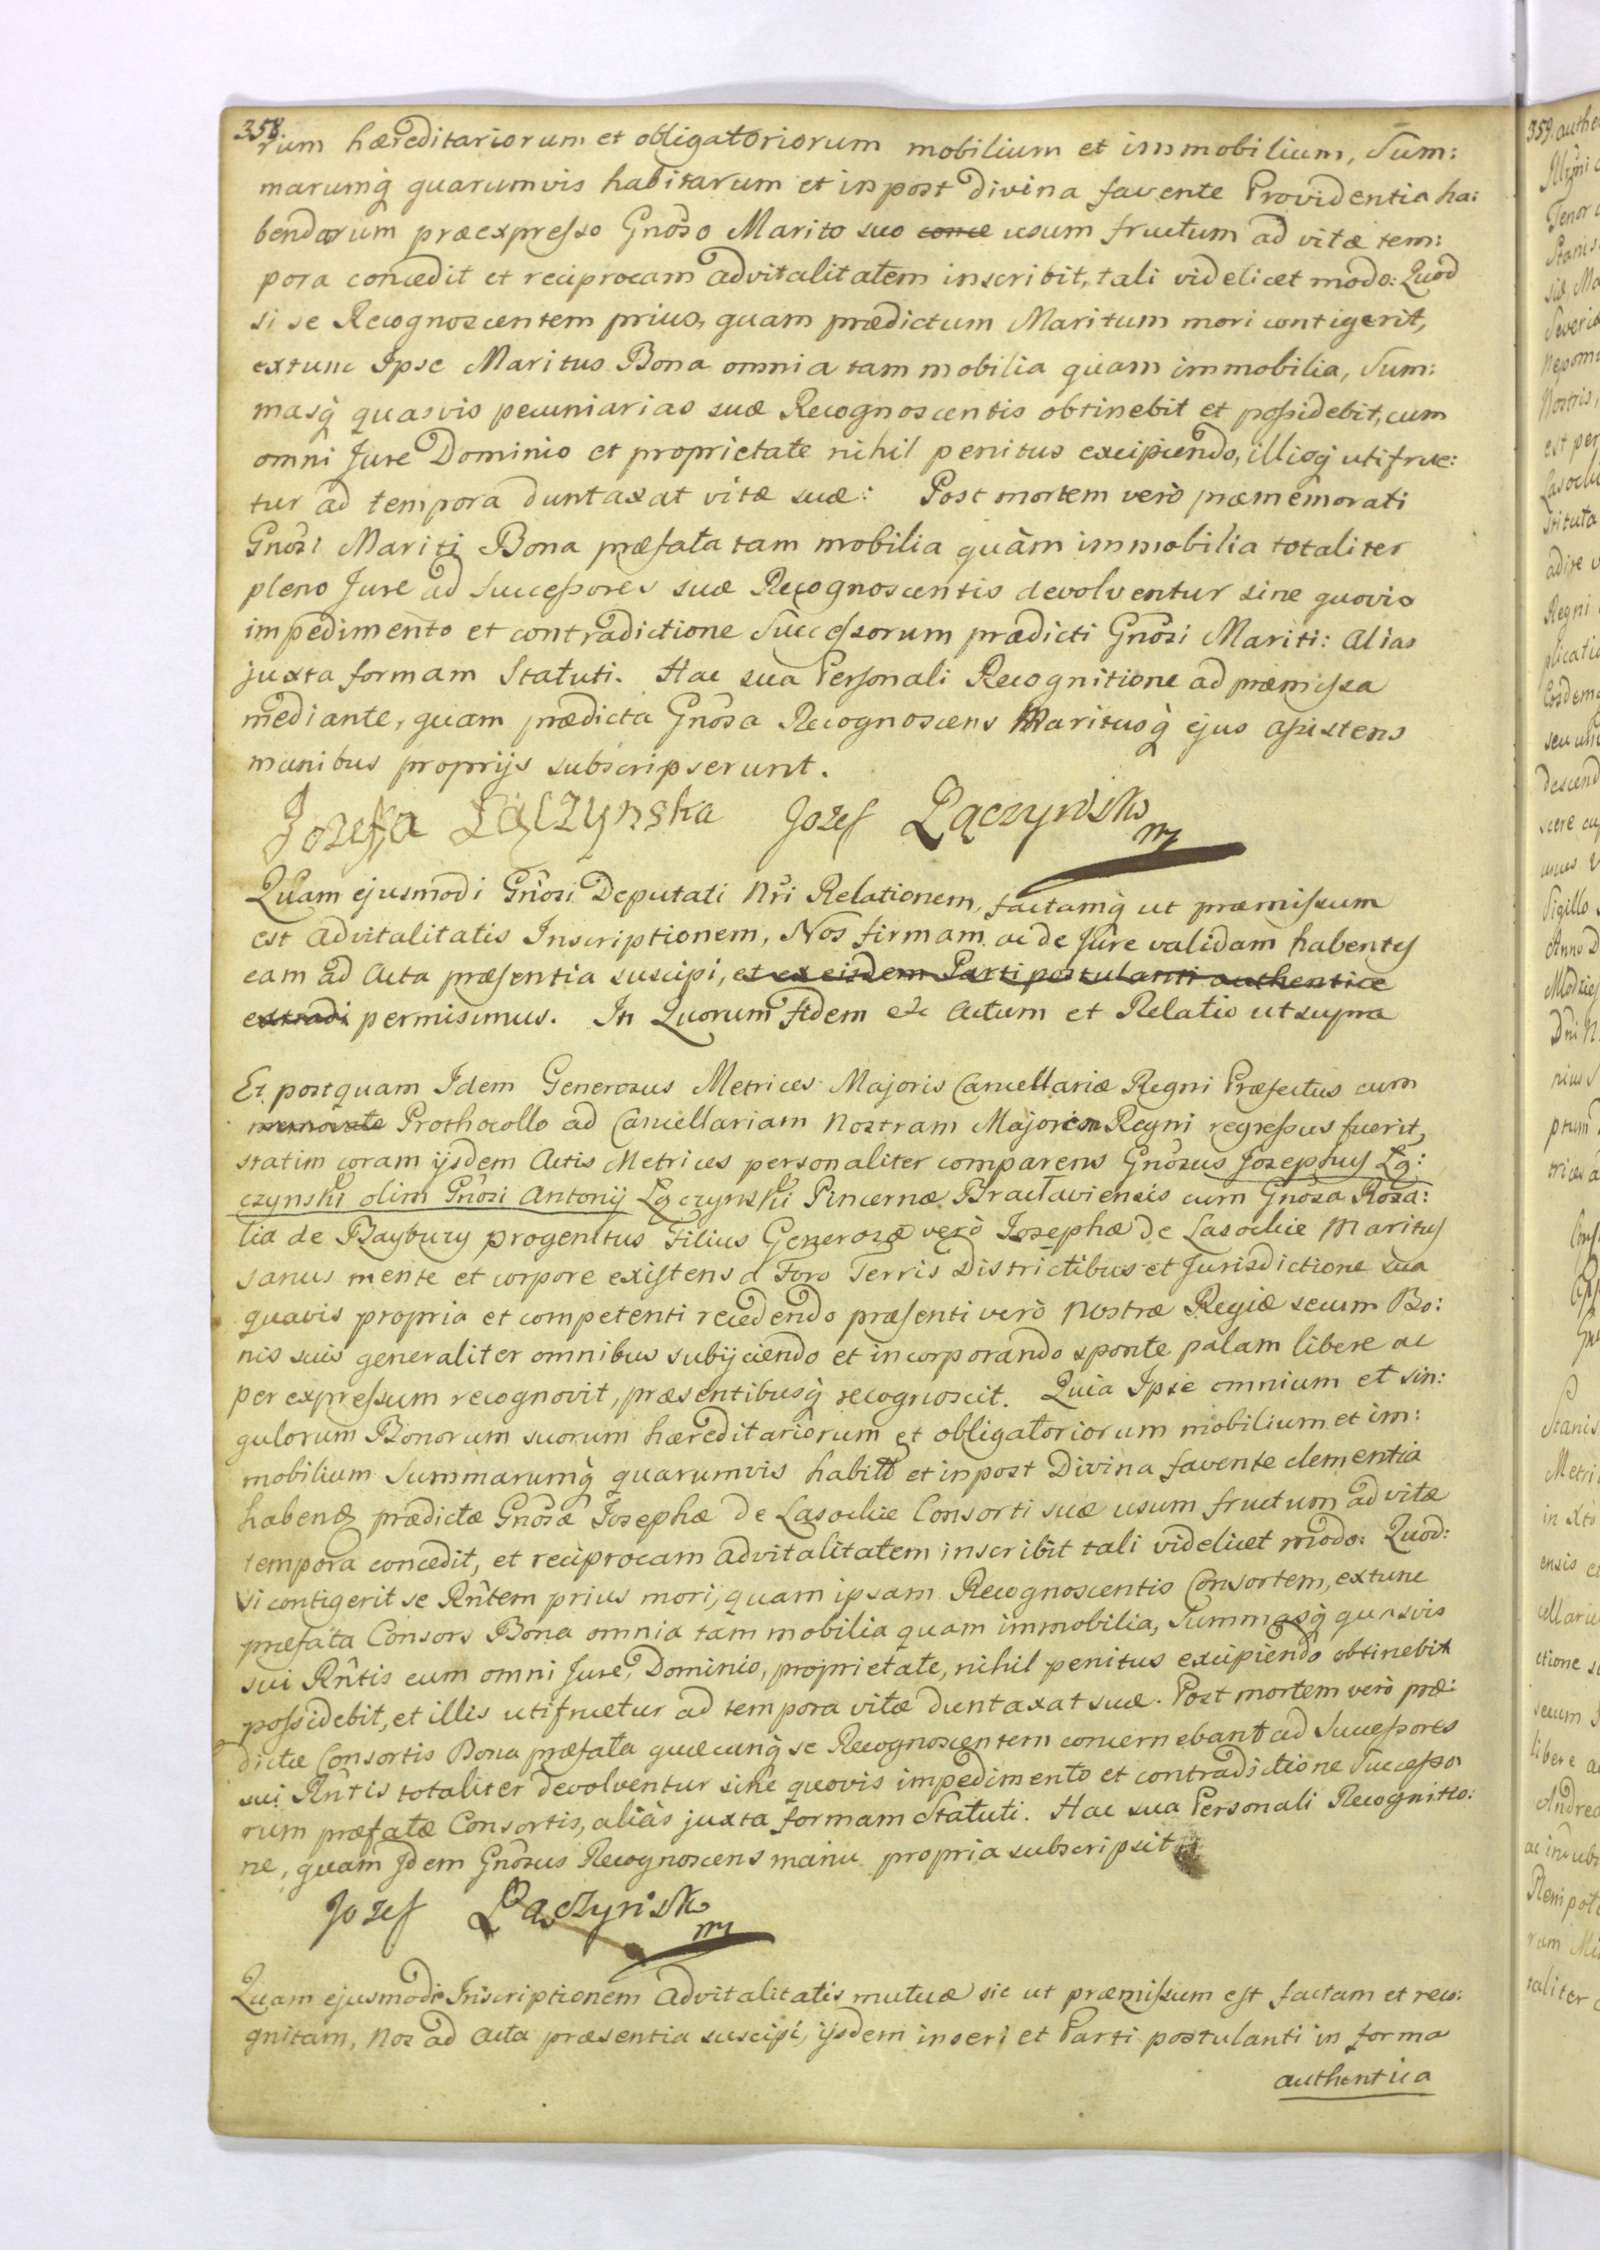 358.
rum hæreditariorum et obligatoriorum mobilium et immobilium, Sum:
marumq̀ quarumvis habitarum et inpost divina favente Providentia ha:
bendarum præexpresso Gnoso Marito suo conce usum fructum ad vitæ tem:
pora concedit et reciprocam advitalitatem inscribit, tali videlicet modo: Quod
si se Recognoscentem prius, quam prædictum Maritum mori contigerit,
extunc Ipse Maritus Bona omnia tam mobilia quam immobilia, Sum:
masq̀ quasvis pecuniarias suæ Recognoscentis obtinebit et possidebit, cum
omni Jure Dominio et proprietate nihil penitus excipiendo, illisq̀ utifrue:
tur ad tempora duntaxat vitæ suæ: Post mortem verò præmemorati
Gnosi Mariti Bona præfata tam mobilia quàm immobilia totaliter
pleno Jure ad Successores suæ Recognoscentis devolventur sine quovis
impedimento et contradictione Successorum prædicti Gnosi Mariti: alias
juxta formam Statuti. Hac sua Personali Recognitione ad præmissa
mediante, quam prædicta Gnosa Recognoscens Maritusq̀ ejus assistens
manibus proprijs subscripserunt.
Jozefa Łączynska Jozef Łączynski
mp
Quam ejusmodi Gnosi Deputati Nri Relationem, factamq̀ ut præmissum
est Advitalitatis Inscriptionem, Nos firmam ac de Jure validam habentes
eam ad Acta præsentia suscipi, et ex eisdem Parti postulanti authentice
extradi permisimus. In Quorum fidem etc Actum et Relatio ut supra
Et postquam Idem Generosus Metrices Majoris Cancellariæ Regni Præfectus cum
memorato Prothocollo ad Cancellariam Nostram Majorem Regni regressus fuerit,
statim coram ijsdem Actis Metrices personaliter comparens Gnosus Josephus Łą:
czynski olim Gnosi Antonij Łączynski Pincernæ Bractaviensis cum Gnosa Rosa:
lia de Baybuzy progenitus Filius Generosæ verò Josephæ de Lasockie Maritus
sanus mente et corpore existens a Foro Terris Districtibus et Jurisdictione sua
quavis propria et competenti recedendo præsenti verò Nostræ Regiæ secum Bo:
nis suis generaliter omnibus subijciendo et incorporando sponte palam libere ac
per expressum recognovit, præsentibusq̀ recognoscit. Quia Ipse omnium et sin:
gulorum Bonorum suorum hæreditariorum et obligatoriorum mobilium et im:
mobilium Summarumq̀ quarumvis habit et inpost Divina favente clementia
habend prædictæ Gnosæ Josephæ de Lasockie Consorti suæ usum fructum ad vitæ
tempora concedit, et reciprocam advitalitatem inscribit tali videlicet modo: Quod:
si contigerit se Rntem prius mori, quam ipsam Recognoscentis Consortem, extunc
præfata Consors Bona omnia tam mobilia quam immobilia, Summasq̀ quasvis
sui Rntis cum omni Jure, Dominio, proprietate, nihil penitus excipiendo obtinebit
possidebit, et illis utifruetur ad tempora vitæ duntaxat suæ. Post mortem verò præ:
dictæ Consortis Bona præfata quæcunq̀ se Recognoscentem concernebant ad Successores
sui Rntis totaliter devolventur sine quovis impedimento et contradictione Successo
rum præfatæ Consortis, aliàs juxta formam Statuti. Hac sua Personali Recognitio:
ne, quam Idem Gnosus Recognoscens manu propria subscripsit
Jozef Łączynski
mp
Quam ejusmodi Inscriptionem Advitalitatis mutuæ sic ut præmissum est factam et reco:
gnitam, Nos ad Acta præsentia suscipi, ijsdem inseri et Parti postulanti in forma
authentica
359.